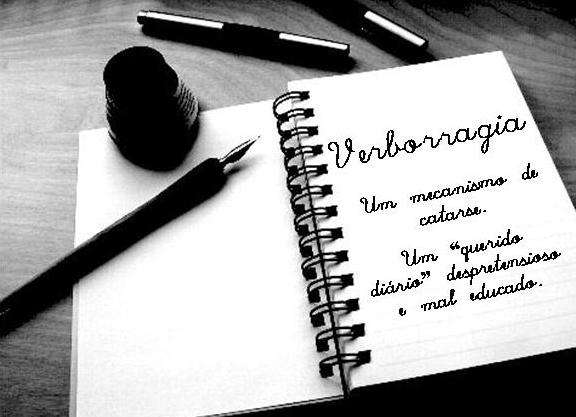 Verborragia
Um mecanismo de
catarse.
Um “querido
diário” despretensioso
e mal educado.